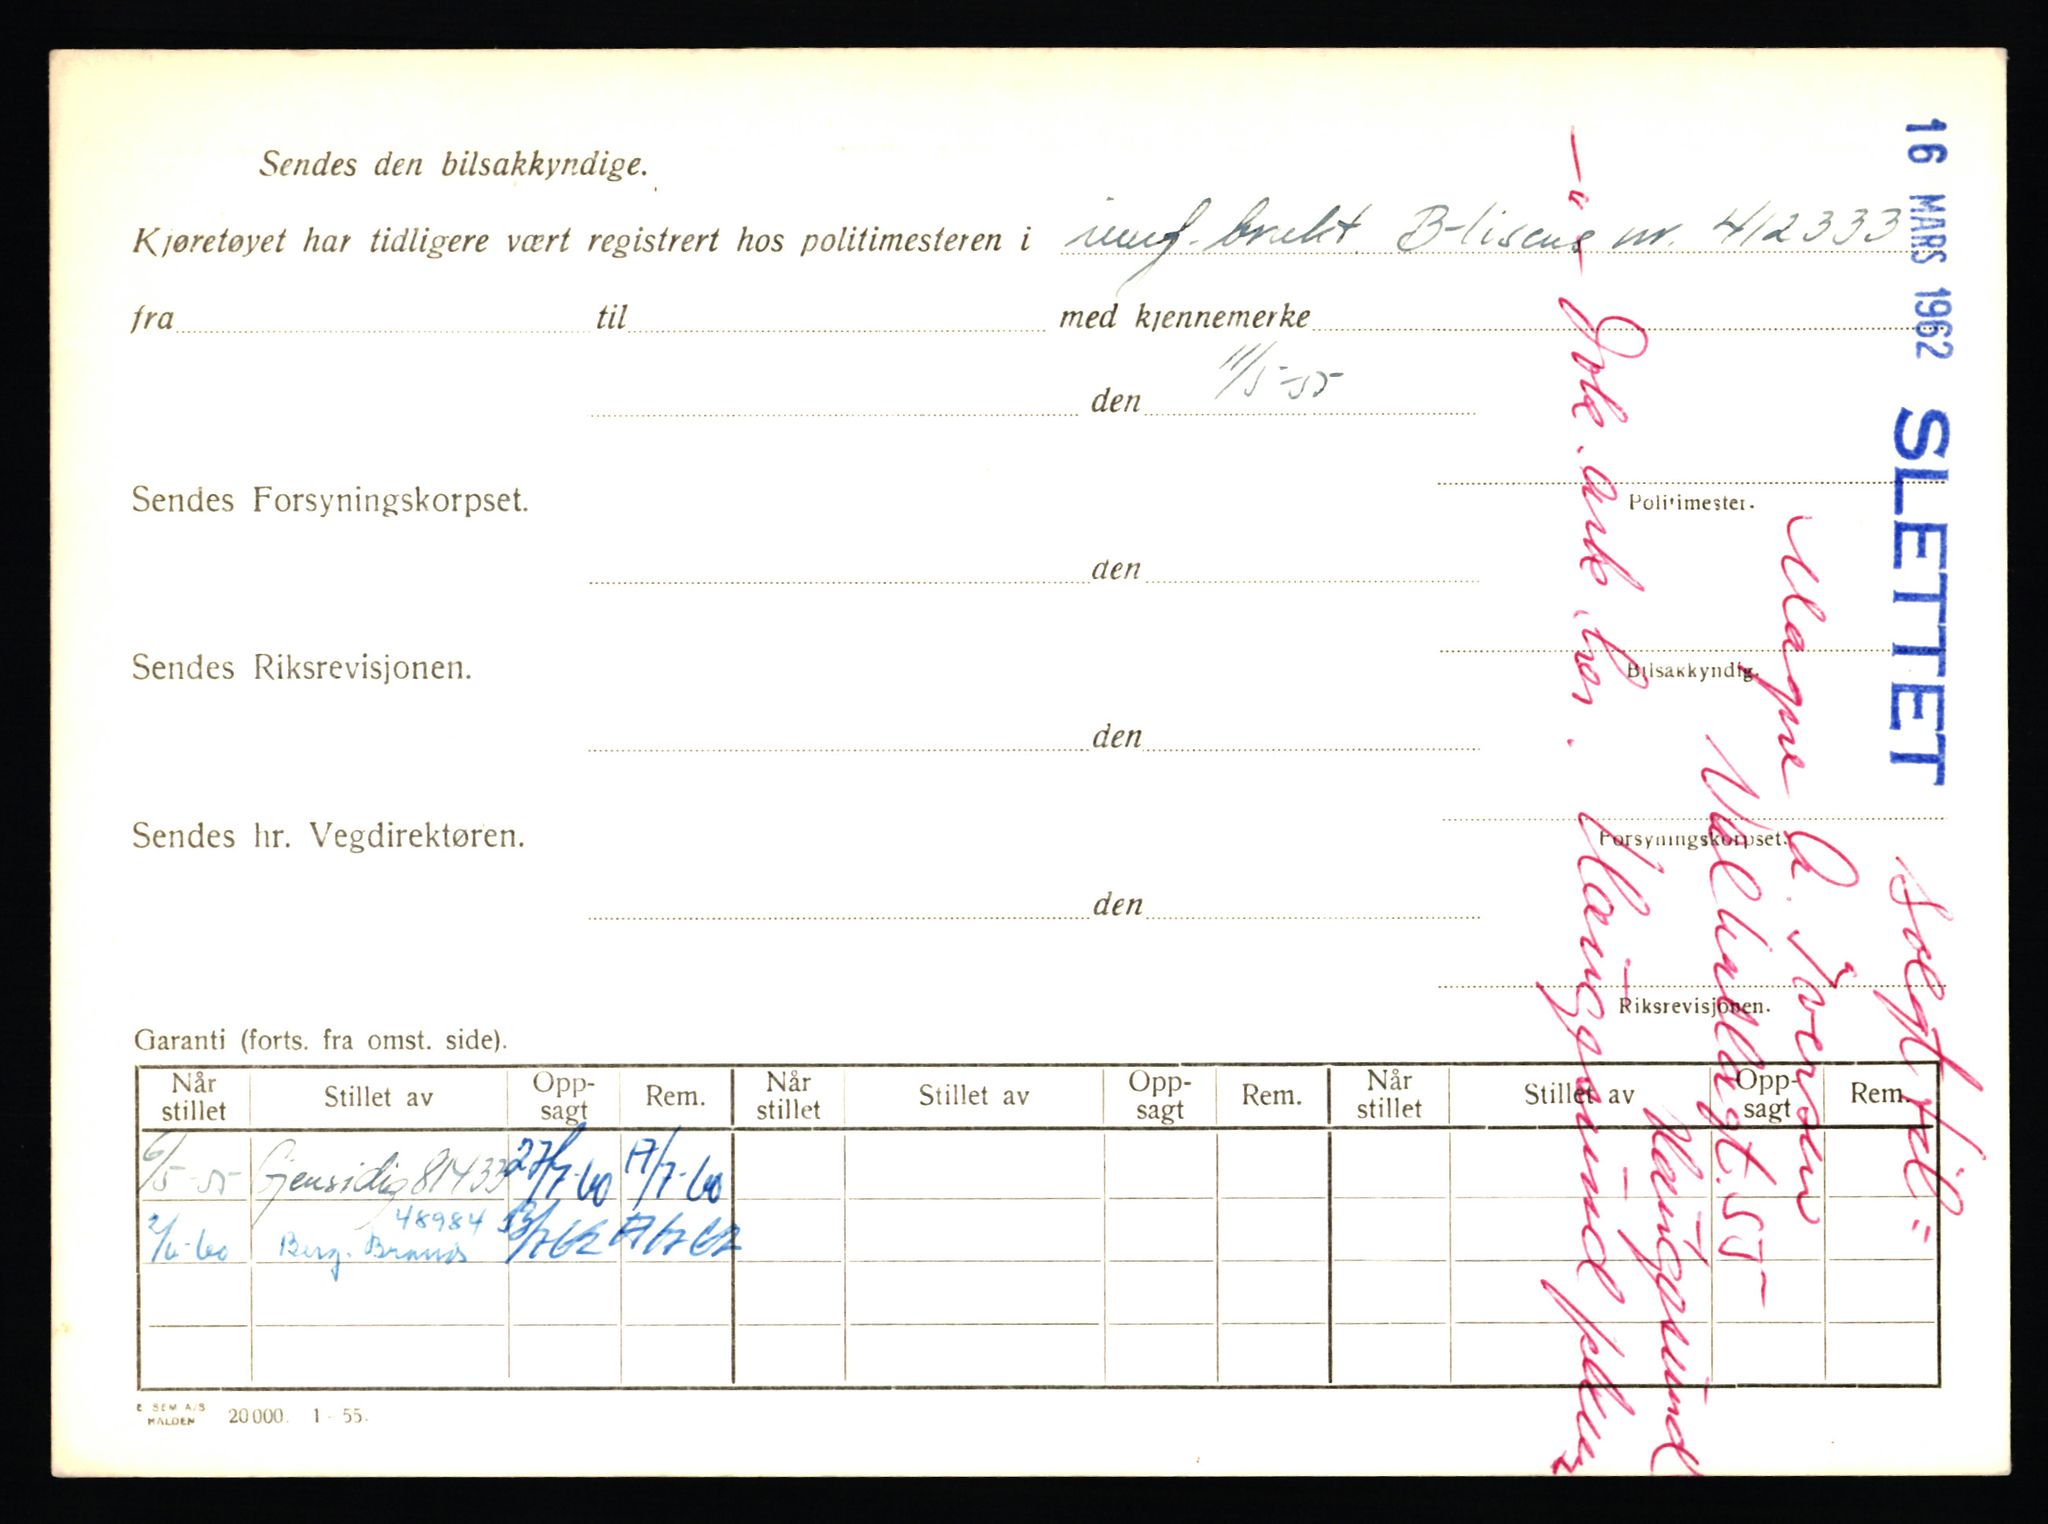 Sendes den bilsakkyndige.
Kjøretøyet har tidligere vært registrert hos politimesteren i brukt B-lisens nr. 412333
fra til med kjennemerke
den 11/5-55
Sendes Forsyningskorpset.
Politimester.
den
Sendes Riksrevisjonen.
Bilsakkyndig.
den
Sendes hr. Vegdirektøren.
Forsyningskorpset.
den
Riksrevisjonen.
Garanti (forts. fra omst. side).
Når stillet Stillet av Opp-sagt Rem. Når stillet Stillet av Opp-sagt Rem. Når stillet Stillet av Opp-sagt Rem.
6/5-55 Gjensidig 81433 27/7-60 17/7-60
48984
2/6-60 Berg. Brands 13/7 62 17/7 62
E SEM A/S
HALDEN
20000. 1 - 55.
16 MARS 1962 SLETTET
Solgt til:
Magne A. Iversen
55
Haugesund
Haugesund